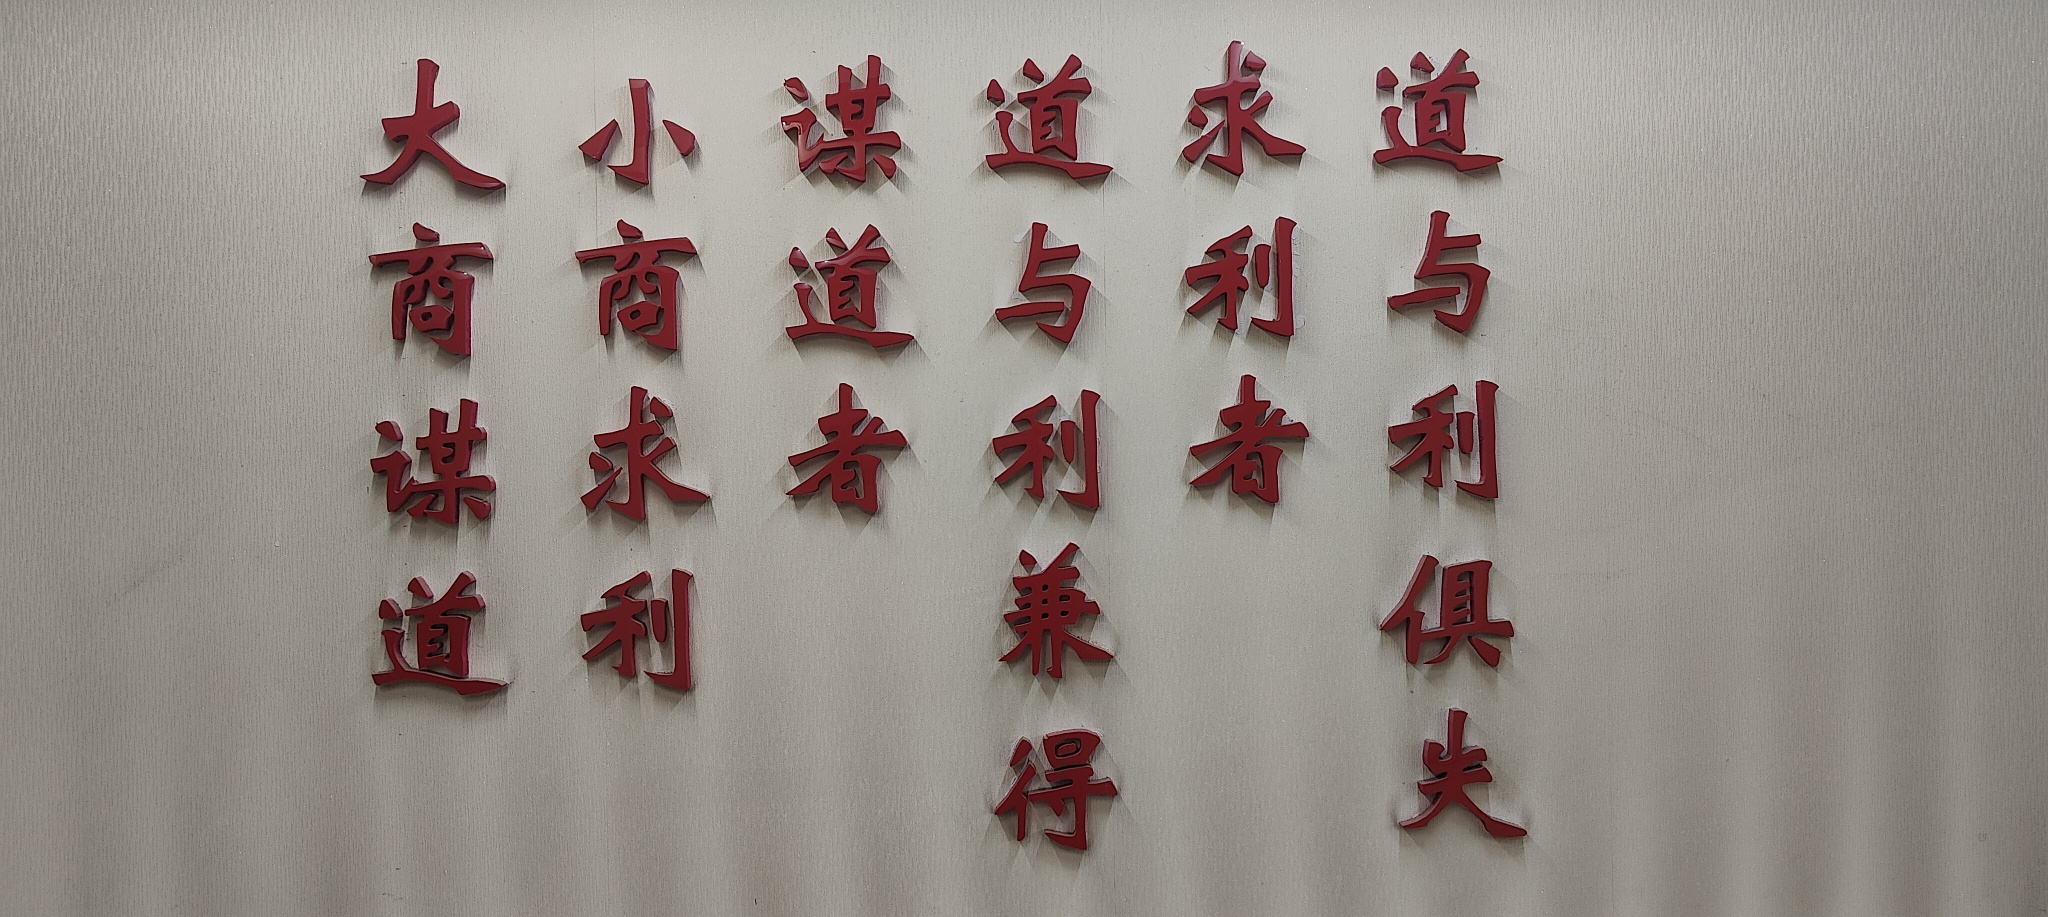 大商谋道
小商求利
谋道者
道与利兼得
求利者
道与利俱失